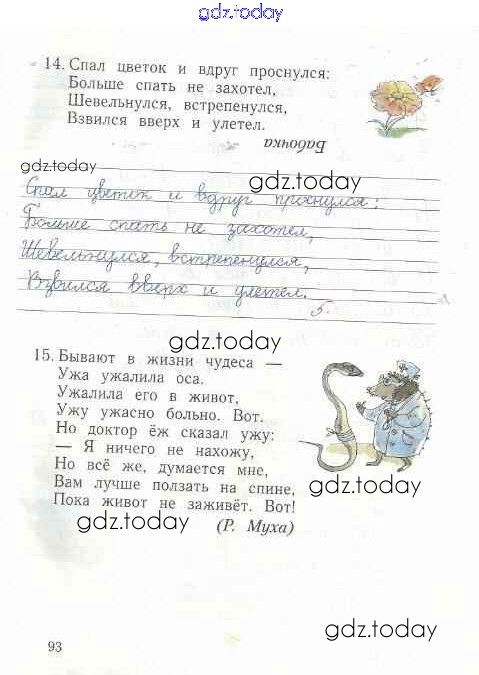 gdz.today
14. Спал цветок и вдруг проснулся:
Больше спать не захотел,
Шевельнулся, встрепенулся,
Взвился вверх и улетел.
Бабочка
gdz.today
gdz.today
Спал цветок и вдруг проснулся:
Больше спать не захотел,
Шевельнулся, встрепенулся,
Взвился вверх и улетел.
5.
gdz.today
15. Бывают в жизни чудеса —
Ужа ужалила оса.
Ужалила его в живот,
Ужу ужасно больно. Вот.
Но доктор ёж сказал ужу:
— Я ничего не нахожу,
Но всё же, думается мне,
Вам лучше ползать на спине,
Пока живот не заживёт. Вот!
(Р. Муха)
gdz.today
gdz.today
gdz.today
93